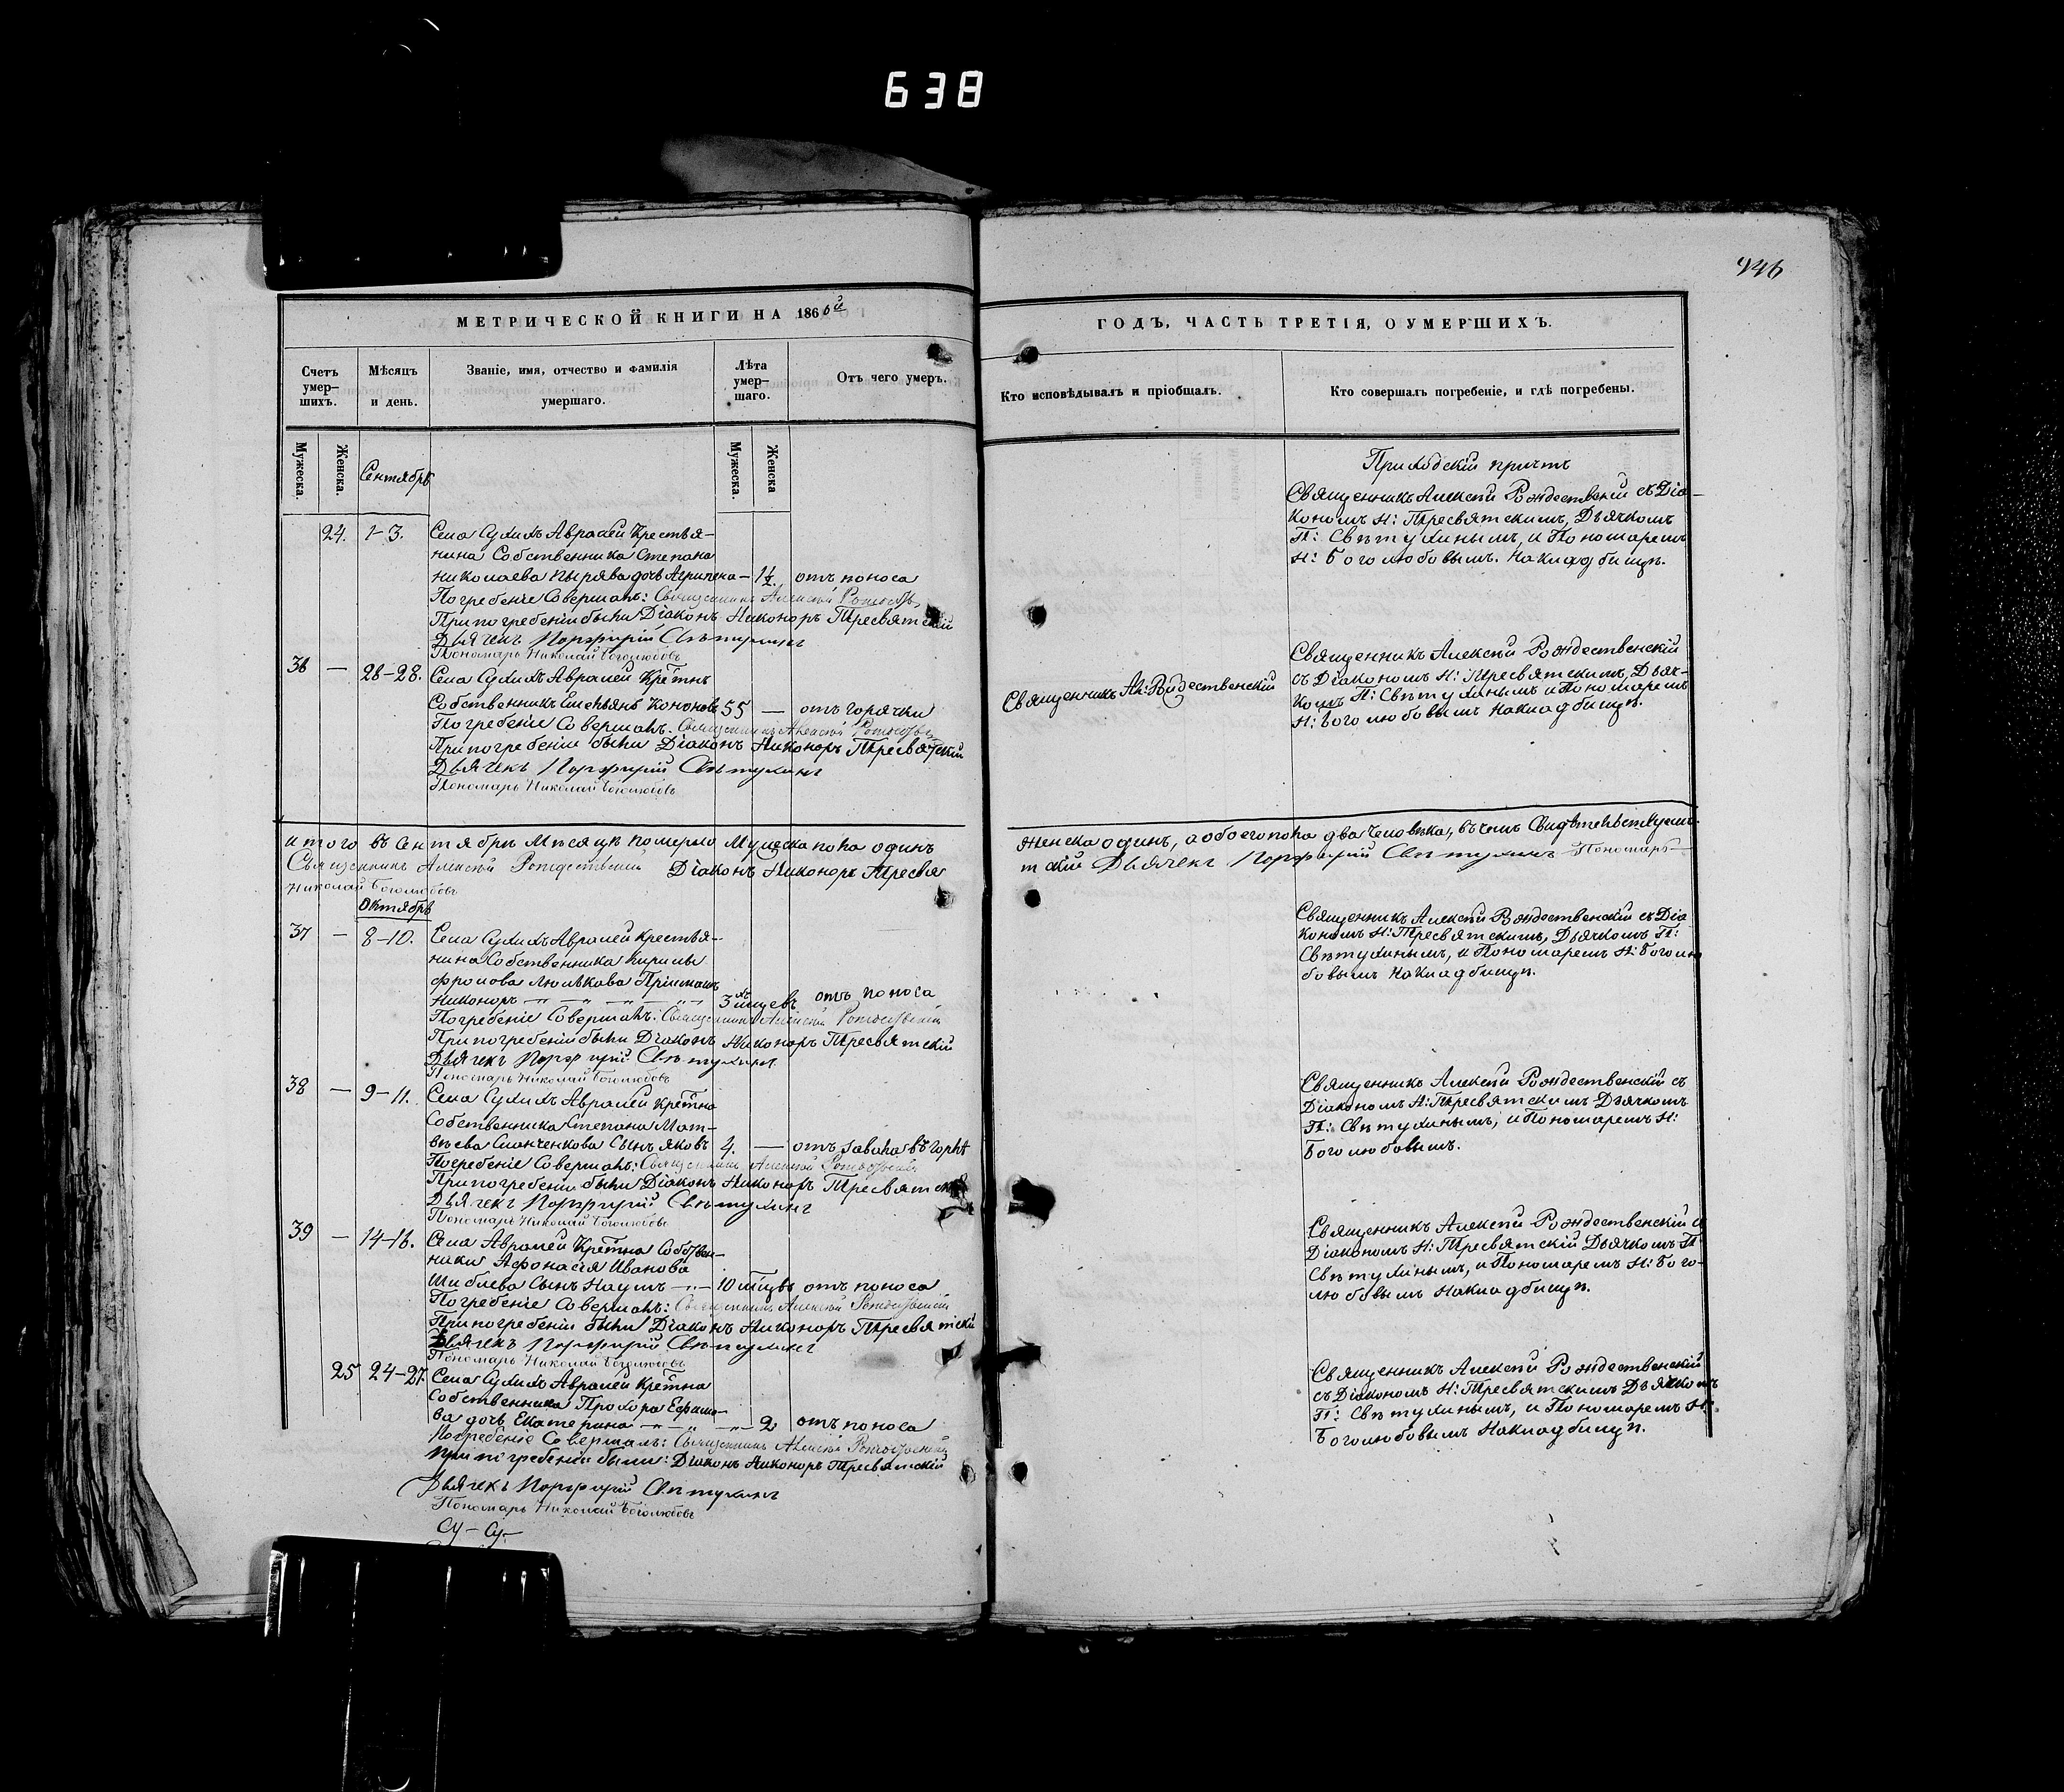 638
446
МЕТРИЧЕСКОЙ КНИГИ НА 1866й
ГОДЪ, ЧАСТЬ ТРЕТІЯ, О УМЕРШИХЪ.
Счетъ умер-шихъ.
Мѣсяцъ и день.
Званіе, имя, отчество и фамилія умершаго.
Лѣта умер-шаго.
Отъ чего умеръ.
Кто исповѣдывалъ и пріобщалъ.
Кто совершалъ погребеніе, и гдѣ погребены.
Мужеска.
Женска.
Сентябрь
Мужеска.
Женска
24. 1-3. Села Сухихъ Авралей Крестья-
нина Собственника Степана
Николаева дочь Агрипена — 1½. отъ поноса
Погребеніе Совершалъ: Священникъ Алексѣй Рождеств.
При погребеніи были Діаконъ Никоноръ Тресвятскій
Дьячекъ Порфирій Свѣтухинъ
Пономарь Николай Боголюбовъ
Приходскій причтъ
Священникъ Алексѣй Рождествений съ Діа-
кономъ Н: Тресвятскимъ, Дьячкомъ
П: Свѣтухинымъ, и Пономаремъ
Н: Боголюбовымъ. На кладбищѣ.
36 — 28-28. Села Сухихъ Авралей Кретнъ
Собственникъ Кононовъ 55 — отъ горячки
Погребеніе Совершалъ. Священникъ Алексѣй Рождеств
При погребеніи были Діаконъ Никоноръ Тресвятскій
Дьячекъ Порфирій Свѣтухинъ
Пономарь Николай Боголюбовъ
Священникъ Ал: Рождественскій
Священникъ Алексѣй Рождественскій
съ Діакономъ Н: Тресвятскимъ, Дьяч-
комъ П: Свѣтухинымъ и Пономаремъ
Н: Боголюбовымъ На кладбищѣ.
итого въ Сентябрѣ Мѣсяцѣ померло Мужеска пола одинъ
Женска одинъ, а обоего пола два человѣка, въ чемъ Свидѣтельствуемъ.
Священникъ Алексѣй Рождественскій Діаконъ Никоноръ Тресвя
тскій Дьячекъ Порфирій Свѣтухинъ Пономарь
Николай Боголюбовъ
Октябрь
37 — 8-10. Села Сухихъ Авралей Крестья-
нина Собственника Кирилы
Фролова Люлькова Пріимышъ
Никоноръ — 3хъ мцевъ отъ поноса
Погребеніе Совершалъ: Священникъ Алексѣй Рождественскій
При погребеніи были Діаконъ Никоноръ Тресвятскій
Дьячекъ Порфирій Свѣтухинъ
Пономарь Николай Боголюбовъ
Священникъ Алексѣй Рождественскій съ Діа
кономъ Н: Тресвятскимъ, Дьячкомъ П:
Свѣтухинымъ, и Пономаремъ Н: Боголю
бовымъ На кладбищѣ.
38 — 9-11. Села Сухихъ Авралей Кретна
Собственника Степана Мат-
вѣева Сынъ Яковъ 4. — отъ завала въ горлѣ
Погребеніе Совершалъ: Священникъ Алексѣй Рождественскій
При погребеніи были Діаконъ Никоноръ Тресвятскій
Дьячекъ Порфирій Свѣтухинъ
Пономарь Николай Боголюбовъ
Священникъ Алексѣй Рождественскій съ
Діакономъ Н: Тресвятскимъ Дьячкомъ
П: Свѣтухинымъ, и Пономаремъ Н:
Боголюбовымъ.
39 — 14-16. Села Авралей Кретна Собствен-
ника Афонасія Иванова
Шиблева Сынъ Наумъ — 10 мцовъ отъ поноса
Погребеніе Совершалъ: Священникъ Алексѣй Рождественскій
При погребеніи были Діаконъ Никоноръ Тресвятскій
Дьячекъ Порфирій Свѣтухинъ
Пономарь Николай Боголюбовъ
Священникъ Алексѣй Рождественскій съ
Діакономъ Н: Тресвятскій Дьячкомъ П
Свѣтухинымъ, и Пономаремъ Н: Бого-
любовымъ На кладбищѣ.
25 24-27. Села Сухихъ Авралей Кретна
Собственника Прохора Ефимо-
ва дочь Екатерина — 2 отъ поноса
Погребеніе Совершалъ: Священникъ Алексѣй Рождественскій
При погребеніи были: Діаконъ Никоноръ Тресвятскій
Дьячекъ Порфирій Свѣтухинъ
Пономарь Николай Боголюбовъ
Су- Су-
Священникъ Алексѣй Рождественскій
съ Діакономъ Н: Тресвятскимъ Дьячкомъ
П: Свѣтухинымъ, и Пономаремъ Н:
Боголюбовымъ На кладбищѣ.